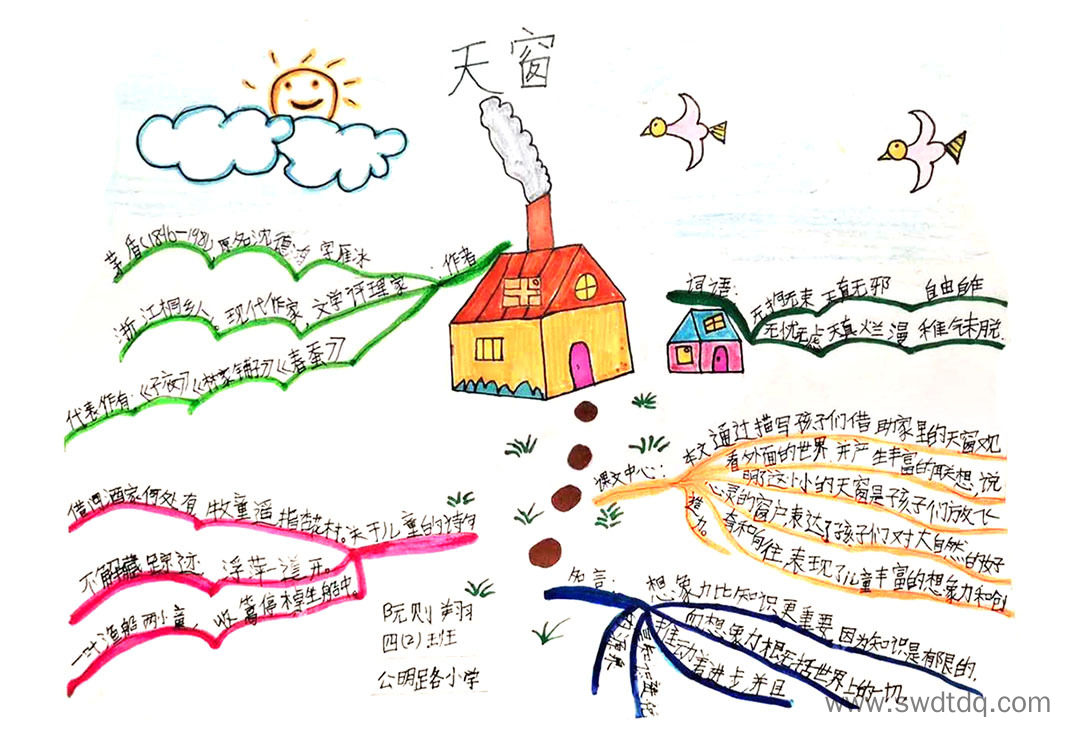 天窗
作者：
茅盾(1896—1981)原名沈德鸿 字雁冰
浙江桐乡人。现代作家 文学评理家
代表作有：《子夜》《林家铺子》《春蚕》
词语：
无拘无束 天真无邪 自由自在
无忧无虑 天真烂漫 稚气未脱
课文中心：
本文通过描写孩子们借助家里的天窗观
看外面的世界并产生丰富的联想,说
明了这个小小的天窗是孩子们放飞
心灵的窗户表达了孩子们对大自然的好
奇和向往,表现了儿童丰富的想象力和创
造力。
关于儿童的诗句
借问酒家何处有 牧童遥指杏花村。
不解藏踪迹 浮萍一道开。
一叶渔船两小童 收篙停棹坐船中。
名言：
想象力比知识更重要 因为知识是有限的,
而想象力概括世界上的一切
推动着进步并且
是知识进化
的源泉
阮则翔
四(2)班
公明足各小学
www.swdtdq.com